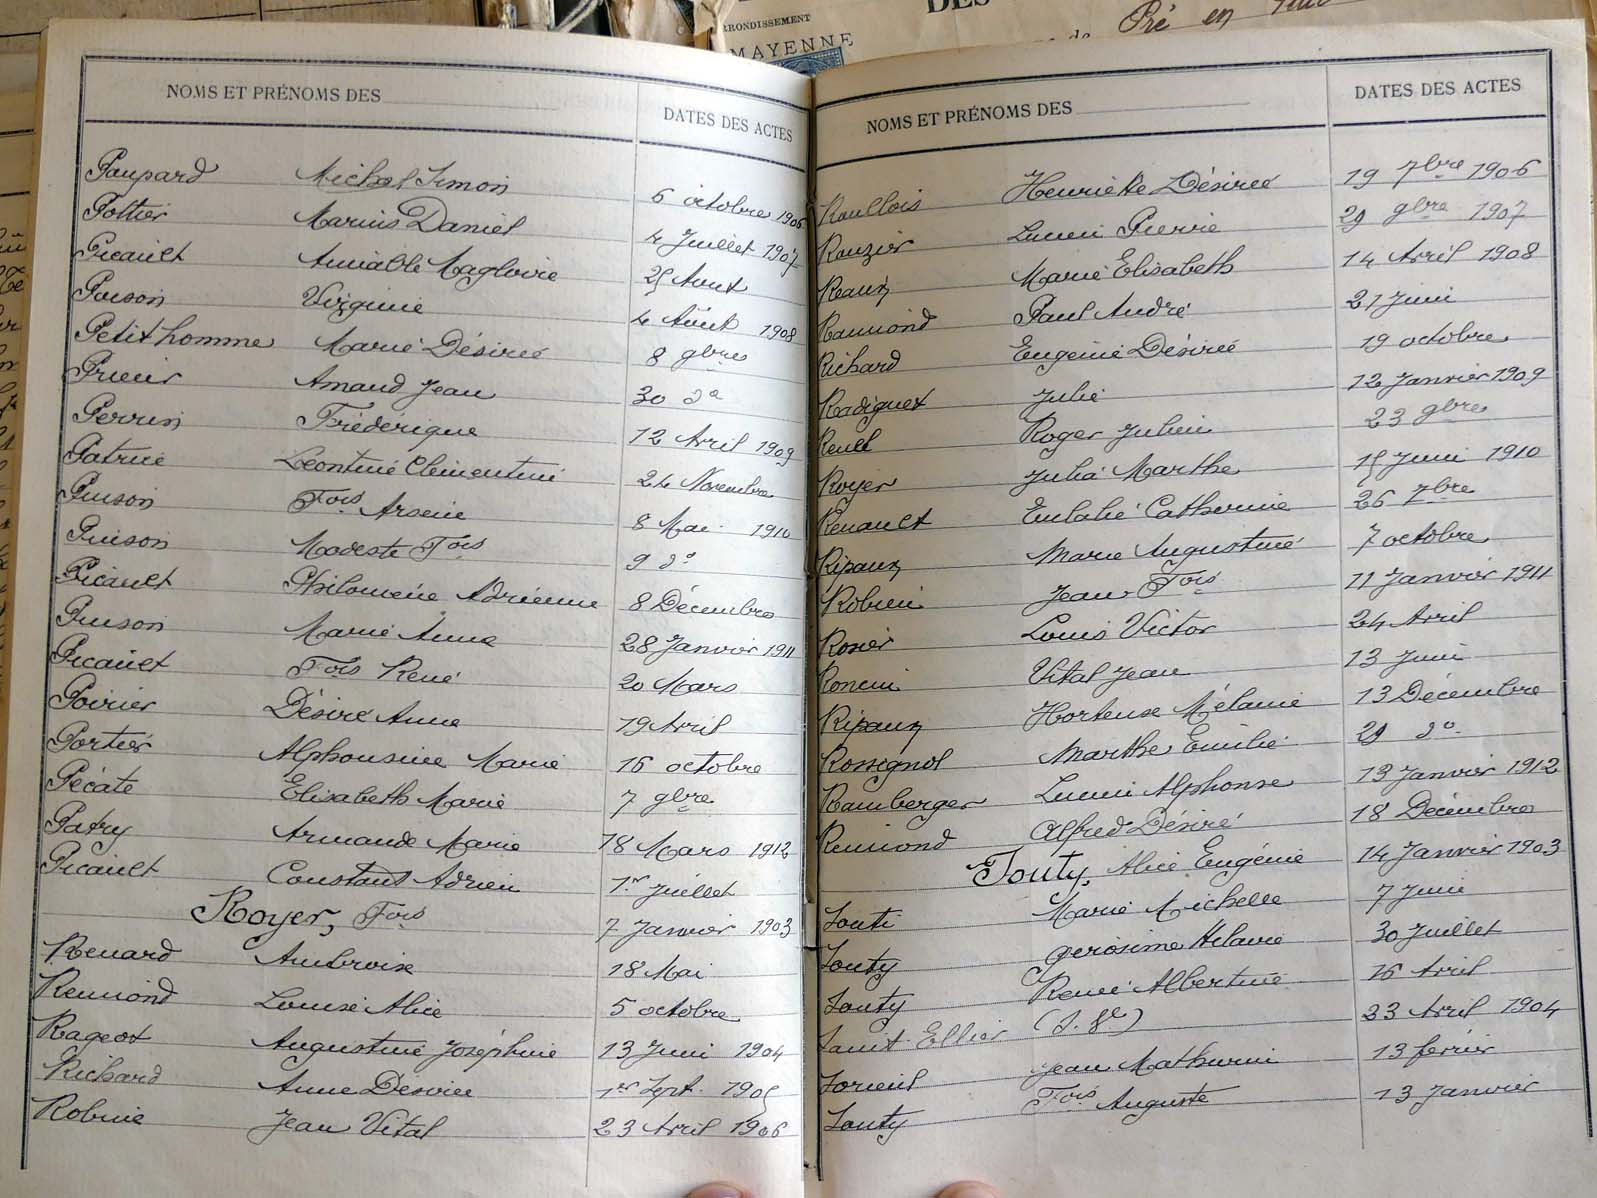 RRONDISSEMENT
MAYENNE
DES
de Pré en
NOMS ET PRÉNOMS DES
DATES DES ACTES
Paupard Michel Simon 6 octobre 1906
Pottier Marius Daniel 4 Juillet 1907
Picault Aimable Magloire 25 Aout
Poison Virginie 4 Aôut 1908
Petithomme Marie Désirée 8 gbres
Prieur Amand Jean 30 do
Perrin Fréderique 12 Avril 1909
Patrie Léontine Clémentine 24 Novembre
Puison Fois Arsène 8 Mai 1910
Puison Modeste Fois 9 do
Picault Philomène Adrienne 8 Décembre
Puison Marie Anna 28 Janvier 1911
Picault Fois René 20 Mars
Poirier Désiré Anna 19 Avril
Portier Alphonsine Marie 16 octobre
Pécate Elisabeth Marie 7 gbre
Patry Armande Marie 18 Mars 1912
Picault Constant Adrien 1er Juillet
Royer, Fois 7 Janvier 1903
Renard Ambroise 18 Mai
Remond Louise Alice 5 octobre
Rageot Augustine Joséphine 13 Juin 1904
Richard Anne Desirée 1er Sept. 1905
Robine Jean Vital 23 Avril 1906
NOMS ET PRÉNOMS DES
DATES DES ACTES
Roullois Henriette Désirée 19 7bre 1906
Rouzier Lucien Pierre 29 gbre 1907
Reaux Marie Elisabeth 14 Avril 1908
Raimond Paul André 21 Juin
Richard Eugénie Désirée 19 octobre
Radiguet Julie 12 Janvier 1909
Roger Julien 23 gbres
Royer Julia Marthe 15 Juin 1910
Renault Eulalie Catherine 26 7bre
Ripaux Marie Augustine 7 octobre
Robieu Jean Fois 11 Janvier 1911
Rosier Louis Victor 24 Avril
Roncin Vital Jean 13 Juin
Ripaux Hortense Mélanie 13 Décembre
Rossignol Marthe Emilie 29 do
Ramberger Lucien Alphonse 13 Janvier 1912
Remond Alfred Désiré 18 Décembre
Touty, Alice Eugénie 14 Janvier 1903
Souti Marie Michelle 7 Juin
Souty Gerosime Hilaire 30 Juillet
Souty René Albertine 16 Avril
Saint Ellier 23 Avril 1904
Soreul Jean Mathurin 13 férier
Souty Fois Auguste 13 Janvier